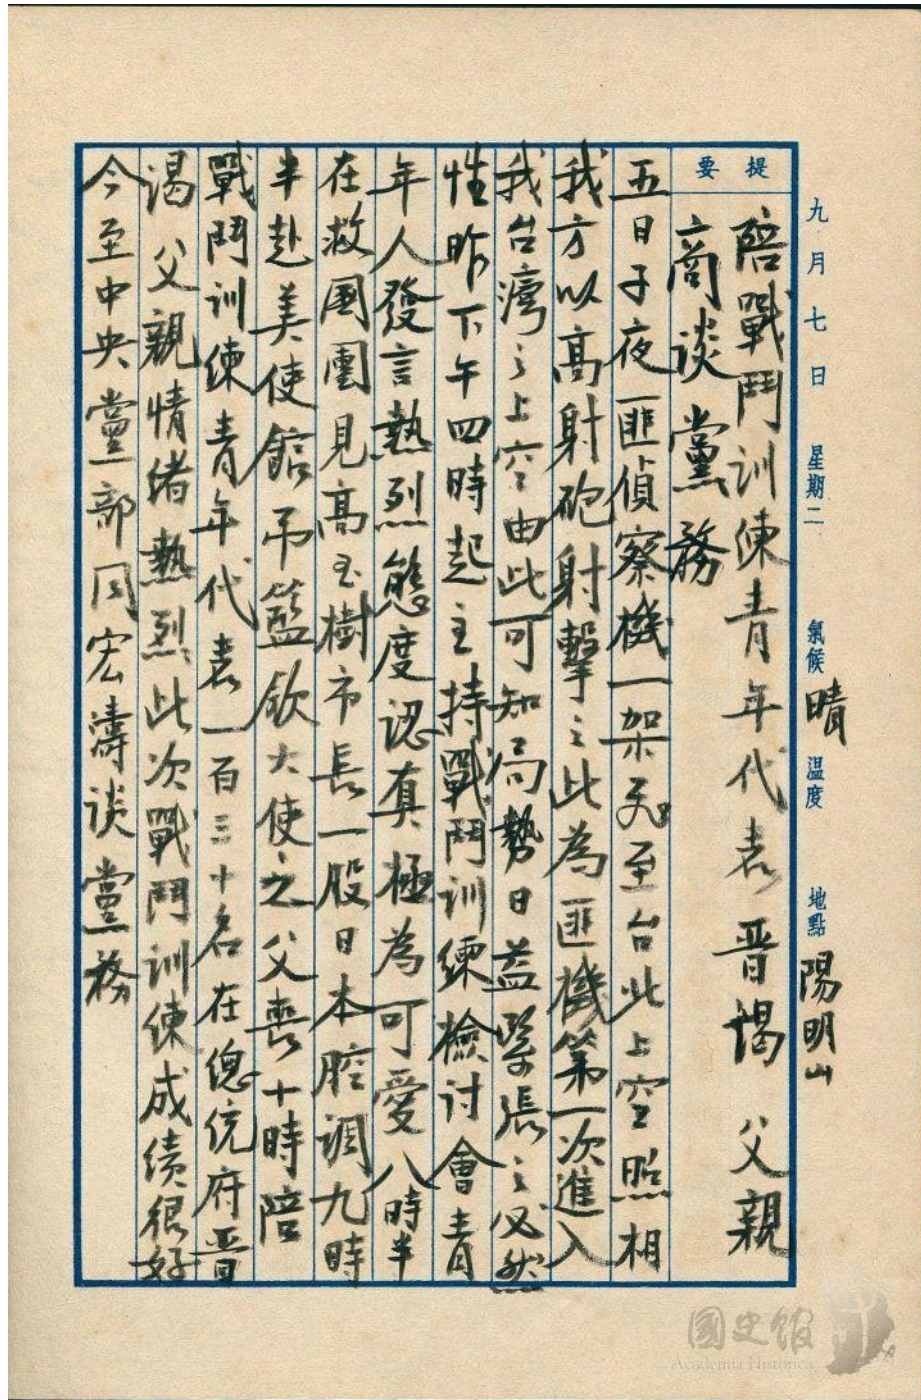 九月七日 星期二 氣候 晴 温度 地點 陽明山
提要
陪戰鬥訓練青年代表晉謁 父親
商談黨務
五日子夜匪偵察機一架飛至台北上空照相
我方以高射砲射擊之此為匪機第一次進入
我台灣之上空由此可知局勢日益緊張之必然
性昨下午四時起主持戰鬥訓練檢討會青
年人發言熱烈態度認真極為可愛八時半
在救國團見高玉樹市長一股日本腔調九時
半赴美使館吊藍欽大使之父喪十時陪
戰鬥訓練青年代表一百三十名在總統府晉
謁 父親情緒熱烈此次戰鬥訓練成績很好
今至中央黨部同宏濤談黨務
國史館
Academia Historica